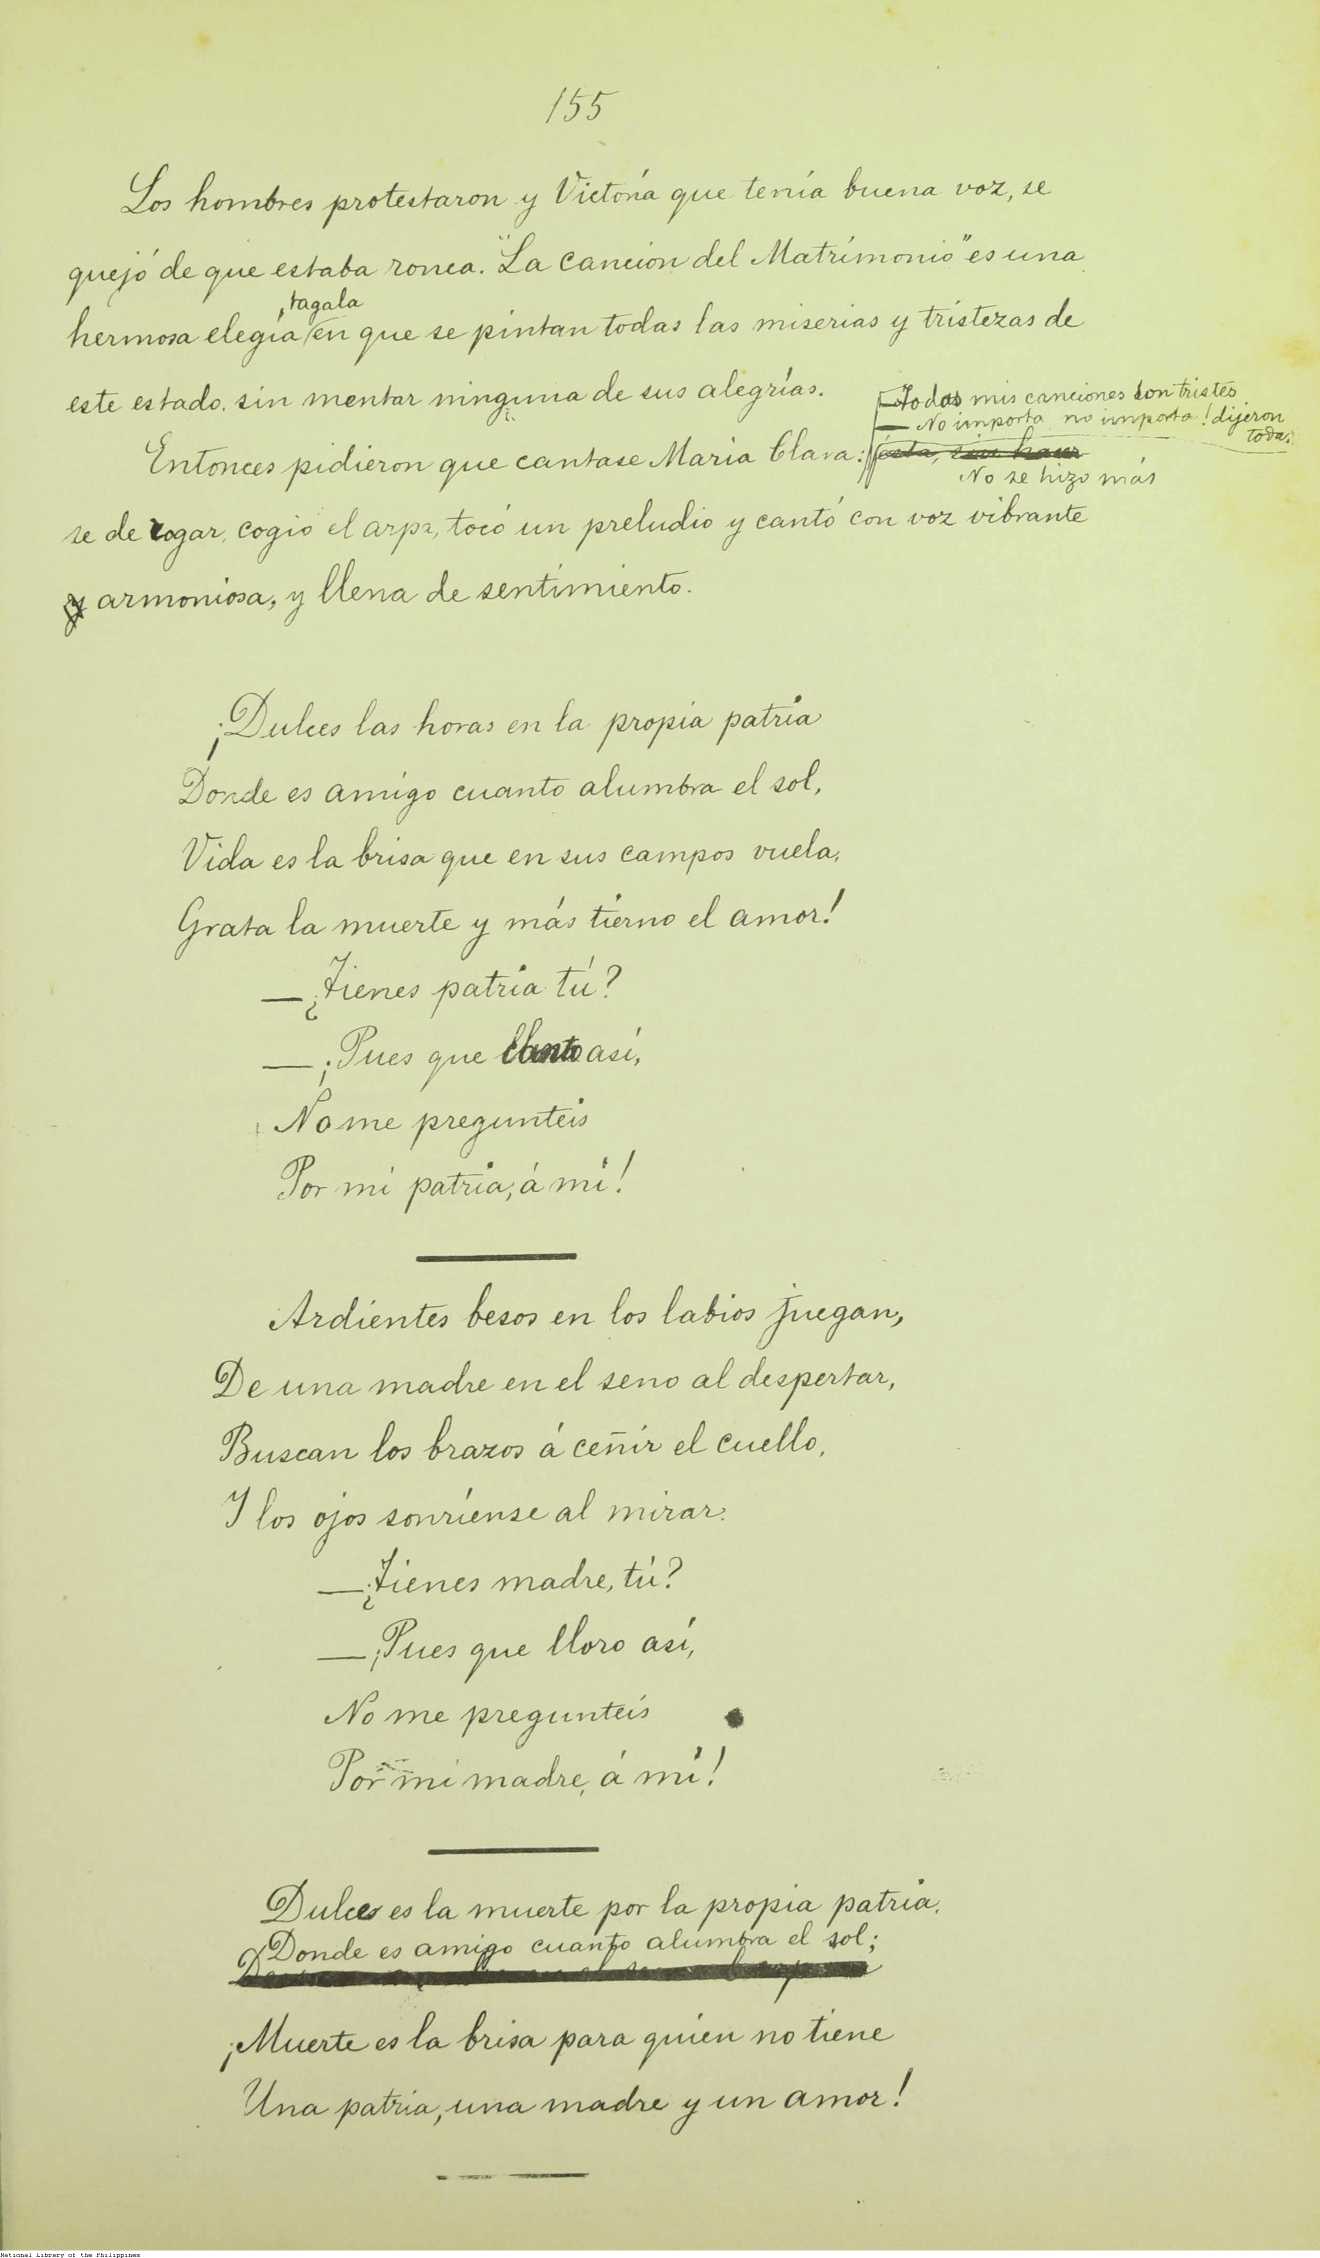 155
Los hombres protestaron y Victoria que tenía buena voz, se
quejó de que estaba ronca. "La cancion del Matrimonio" es una
, tagala
hermosa elegía en que se pintan todas las miserias y tristezas de
este estado, sin mentar ninguna de sus alegrías.
—Todas mis canciones son tristes
— No importa no importa! dijeron
todas.
Entonces pidieron que cantase Maria Clara:
No se hizo más
se de rogar, cogió el arpa, tocó un preludio y cantó con voz vibrante
y armoniosa, y llena de sentimiento.
¡Dulces las horas en la propia patria
Donde es amigo cuanto alumbra el sol,
Vida es la brisa que en sus campos vuela,
Grata la muerte y más tierno el amor!
—¿Tienes patria tú?
—¡Pues que canto así,
No me pregunteis
Por mi patria, á mí!
Ardientes besos en los labios juegan,
De una madre en el seno al despertar,
Buscan los brazos á ceñir el cuello,
Y los ojos sonriense al mirar.
—¿Tienes madre, tú?
—¡Pues que lloro así,
No me pregunteis
Por mi madre, á mí!
Dulce es la muerte por la propia patria,
Donde es amigo cuanto alumbra el sol;
¡Muerte es la brisa para quien no tiene
Una patria, una madre y un amor!
National Library of the Philippines